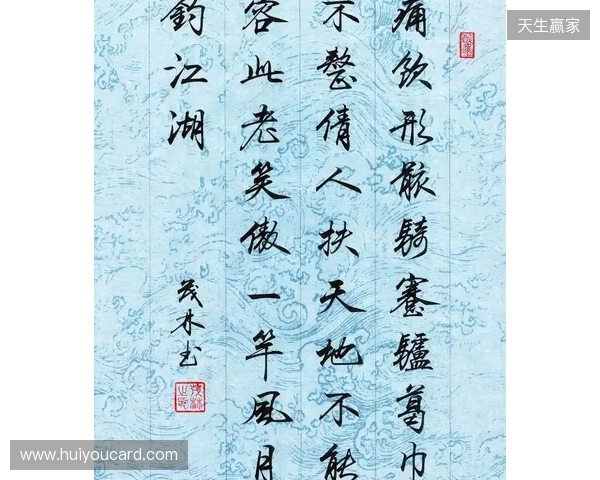 痛飲形骸騎蹇驢葛巾
不整倩人扶天地不能
容此老笑傲一竿風月
釣江湖
茂林书
天生赢家
www.huiyoucard.com